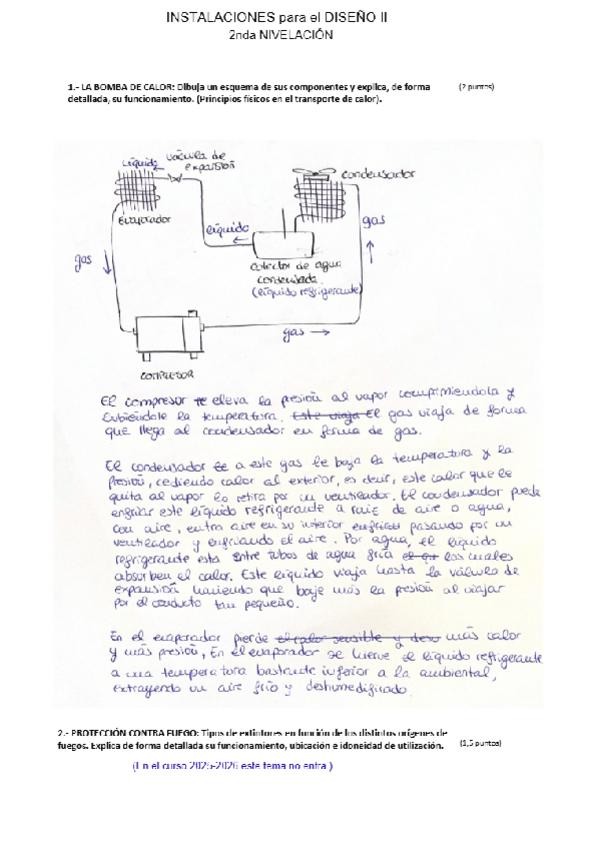 INSTALACIONES para el DISEÑO II
2nda NIVELACIÓN
1.- LA BOMBA DE CALOR: Dibuja un esquema de sus componentes y explica, de forma (2 puntos)
detallada, su funcionamiento. (Principios físicos en el transporte de calor).
líquido
válvula de
expansión
condensador
evaporador
líquido
gas
gas
colector de agua
condensada
(líquido refrigerante)
gas
COMPRESOR
El compresor te eleva la presión al vapor comprimiendola y
subiéndole la temperatura. Este viaja El gas viaja de forma
que llega al condensador en forma de gas.
El condensador a este gas le baja la temperatura y la
presión, cediendo calor al exterior, es decir, este calor que le
quita al vapor lo retira por un ventilador. El condensador puede
enfriar este líquido refrigerante a raiz de aire o agua,
con aire, entra aire en su interior enfriado pasando por un
ventilador y enfriando el aire. Por agua, el líquido
refrigerante esta entre tubos de agua fría los cuales
absorben el calor. Este líquido viaja hasta la válvula de
expansión haciendo que baje más la presión al viajar
por el conducto tan pequeño.
En el evaporador pierde el calor sensible y más calor
y más presión, En el evaporador se hierve el líquido refrigerante
a una temperatura bastante inferior a la ambiental,
extrayendo un aire frío y deshumedificado.
2.- PROTECCIÓN CONTRA FUEGO: Tipos de extintores en función de los distintos orígenes de
fuegos. Explica de forma detallada su funcionamiento, ubicación e idoneidad de utilización. (1,5 puntos)
(En el curso 2025-2026 este tema no entra.)